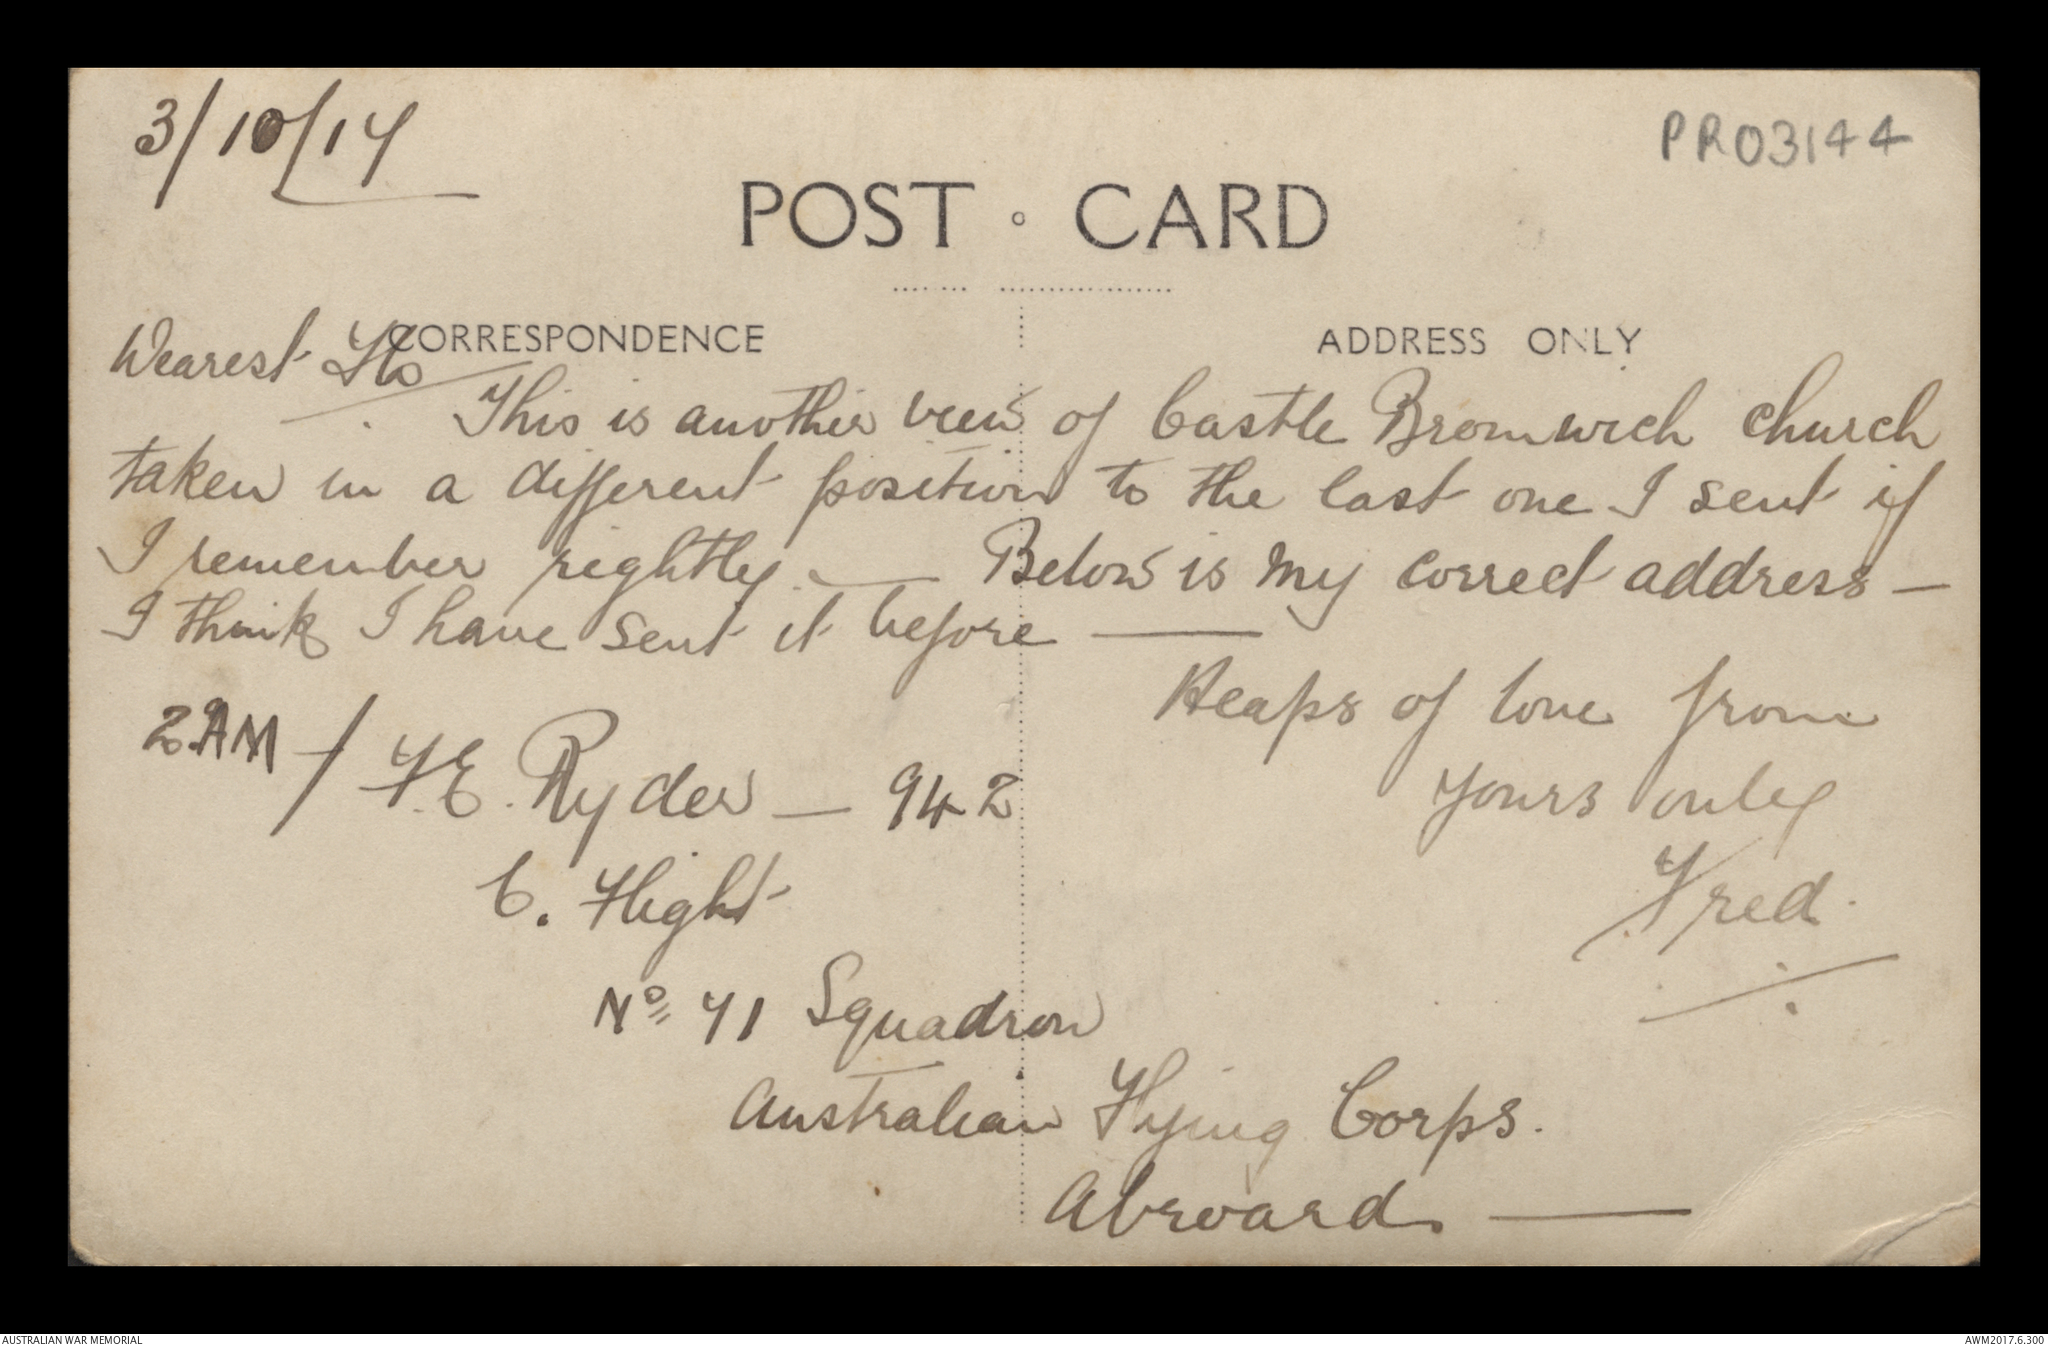 3/10/17
PR03144
POST CARD
CORRESPONDENCE
ADDRESS ONLY
Dearest Flo
This is another view of Castle Bromwich church
taken in a different position to the last one I sent if
I remember rightly. — Below is my correct address —
I think I have sent it before —
Heaps of love from
yours only
Fred.
2AM / F.E. Ryder — 942
C. Flight
No 71 Squadron
Australian Flying Corps.
Abroard. —
AUSTRALIAN WAR MEMORIAL
AWM2017.6.300